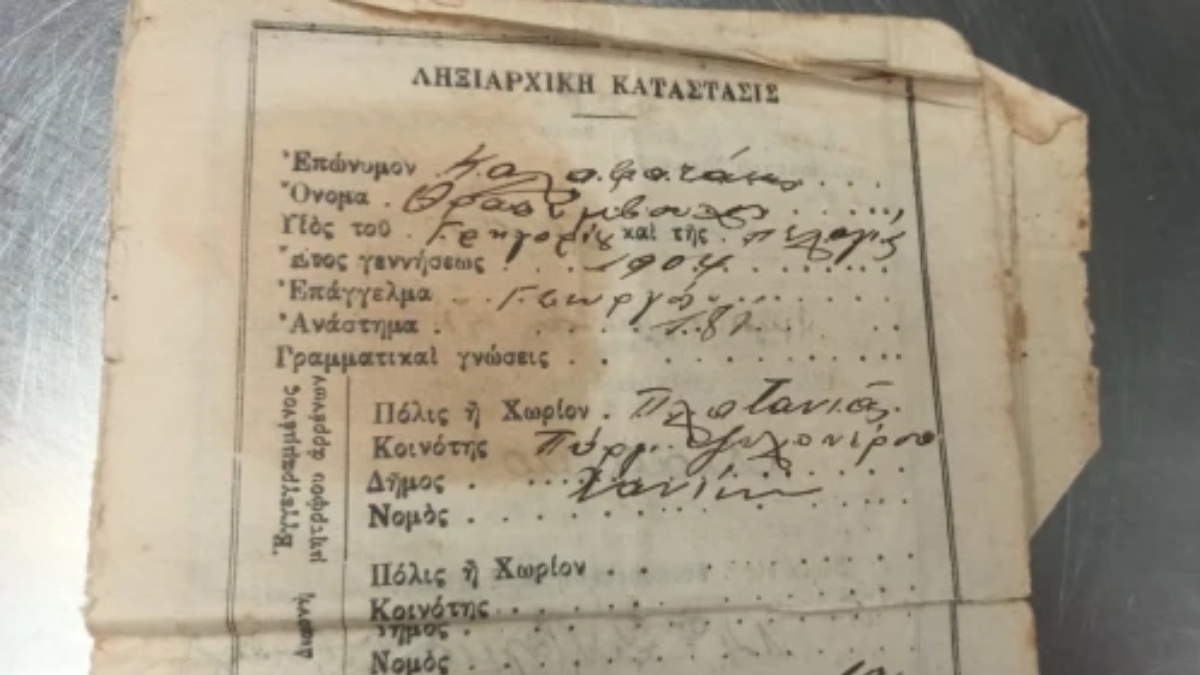 ΛΗΞΙΑΡΧΙΚΗ ΚΑΤΑΣΤΑΣΙΣ
Ἐπώνυμον Καλαφατάκης
Ὄνομα Θρασύβουλος
Υἱὸς τοῦ Γρηγορίου καὶ τῆς Πελαγίας
Ἔτος γεννήσεως 1904
Ἐπάγγελμα Γεωργός
Ἀνάστημα 1.81
Γραμματικαὶ γνώσεις
Ἐγγεγραμμένος
μητρῷον ἀρρένων
Πόλις ἢ Χωρίον Πλατανιάς
Κοινότης
Δῆμος Χανίων
Νομὸς
Διαμονὴ
Πόλις ἢ Χωρίον
Κοινότης
Δῆμος
Νομὸς